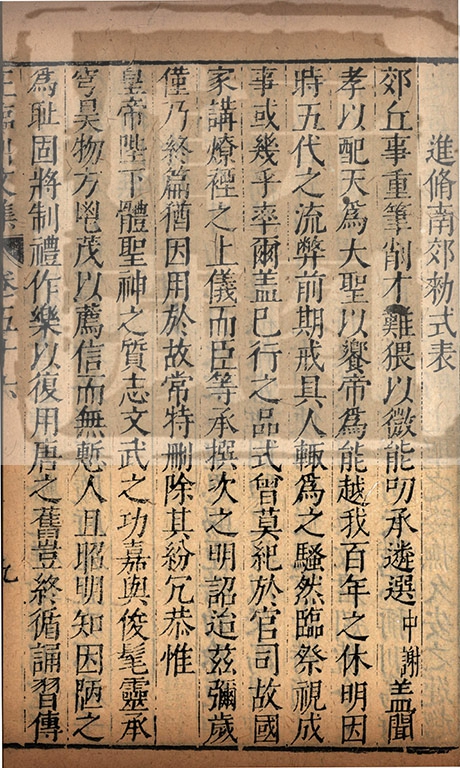 進脩南郊勑式表
郊丘事重筆削才難猥以微能叨承遴選中謝蓋聞
孝以配天爲大聖以饗帝爲能越我百年之休明因
時五代之流弊前期戒具人輙爲之騷然臨祭視成
事或幾乎率爾蓋已行之品式曾莫紀於官司故國
家講燎禋之上儀而臣等承撰次之明詔迨茲彌歲
僅乃終篇猶因用於故常特刪除其紛冗恭惟
皇帝陛下體聖神之質志文武之功嘉與俊髦靈承
穹昊物方鬯茂以薦信而無慙人且昭明知因陋之
爲耻固將制禮作樂以復用唐之舊豈終循誦習傳
王臨川文集 卷五十六 九